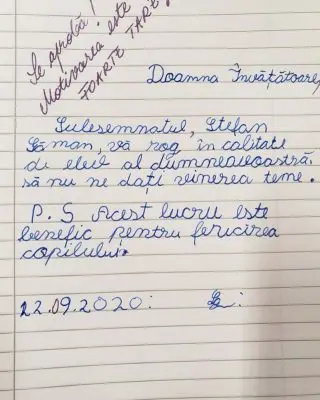 Se aprobă!
Motivarea este
FOARTE TARE
Doamna Învățătoare,
Subsemnatul, Ștefan
Șăman, vă rog în calitate
de elev al dumneavoastră,
să nu ne dați vinerea teme.
P.S Acest lucru este
benefic pentru fericirea
copilului.
22.09.2020: